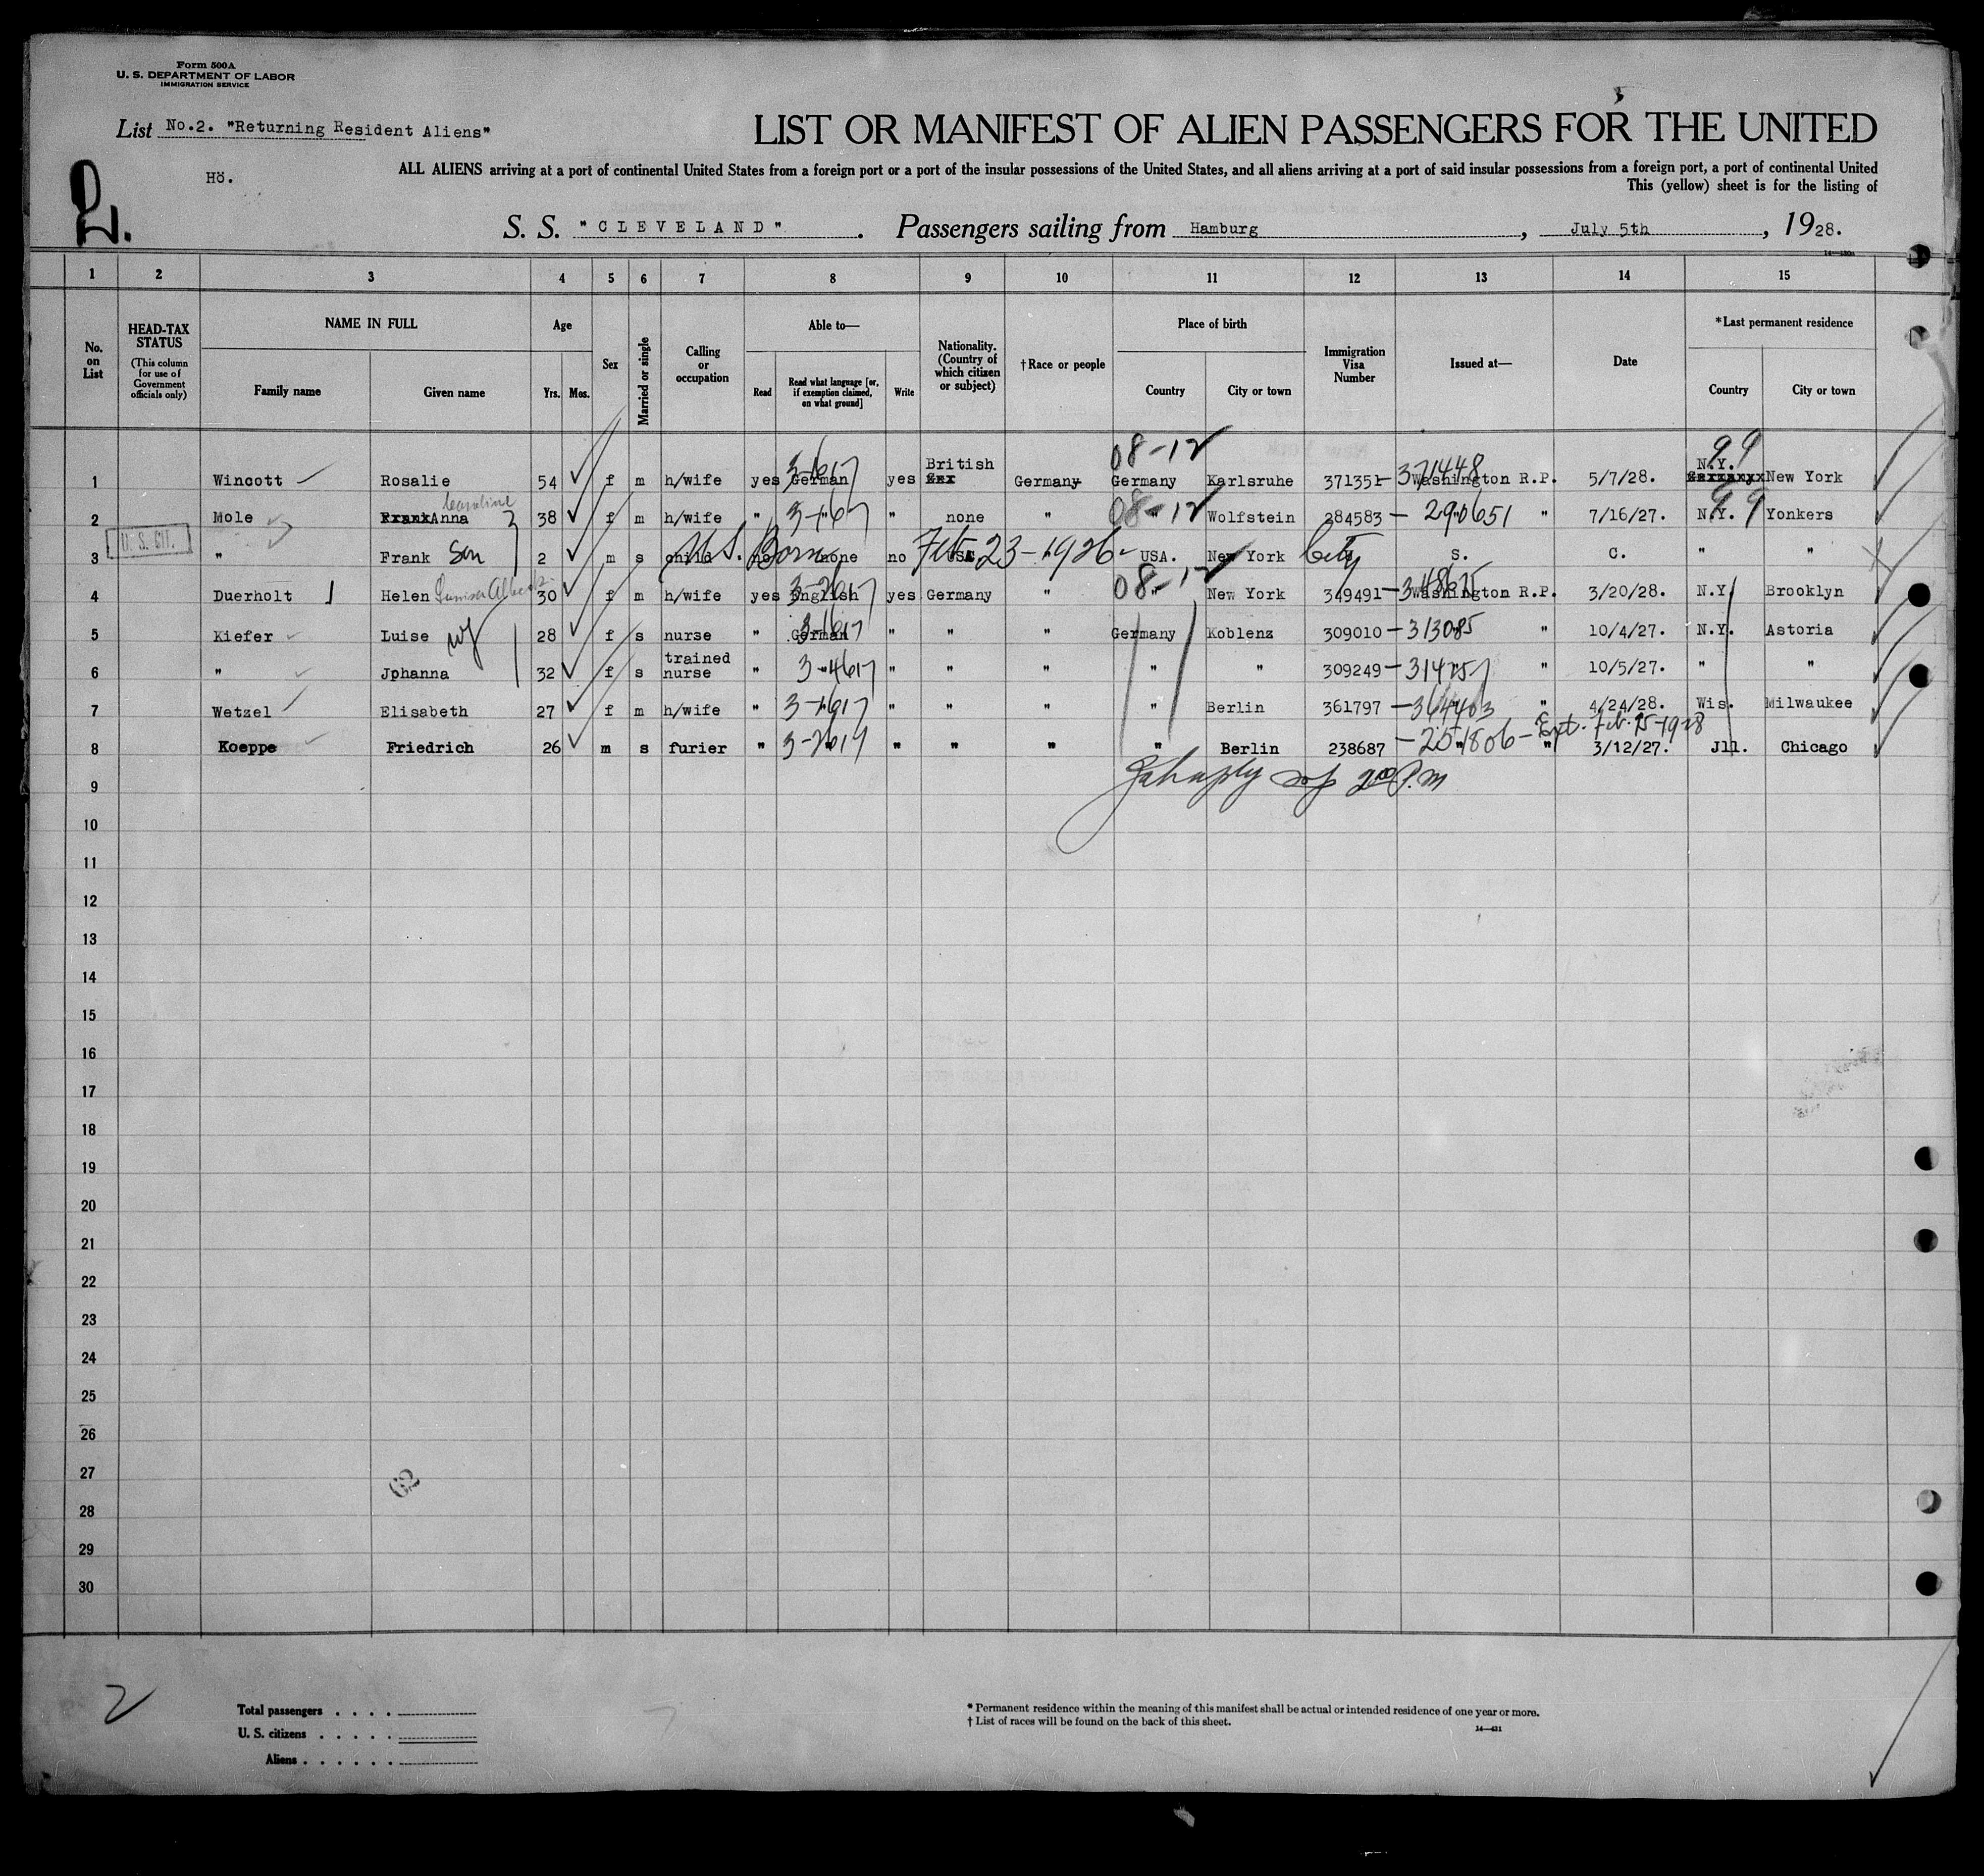 Form 500A
U. S. DEPARTMENT OF LABOR
IMMIGRATION SERVICE
List No.2. "Returning Resident Aliens"
LIST OR MANIFEST OF ALIEN PASSENGERS FOR THE UNITED
Hö.
ALL ALIENS arriving at a port of continental United States from a foreign port or a port of the insular possessions of the United States, and all aliens arriving at a port of said insular possessions from a foreign port, a port of continental United
This (yellow) sheet is for the listing of
S. S. "CLEVELAND". Passengers sailing from Hamburg, July 5th, 1928.
14—430a
1 2 3 4 5 6 7 8 9 10 11 12 13 14 15
No. on List
HEAD-TAX STATUS
(This column for use of Government officials only)
NAME IN FULL
Family name Given name
Age
Yrs. Mos.
Sex
Married or single
Calling or occupation
Able to—
Read
Read what language [or, if exemption claimed, on what ground]
Write
Nationality. (Country of which citizen or subject)
†Race or people
Place of birth
Country City or town
Immigration Visa Number
Issued at—
Date
*Last permanent residence
Country City or town
08-12 99
1 Wincott Rosalie 54 f m h/wife yes German yes British Germany Germany Karlsruhe 371351 - 371448 Washington R.P. 5/7/28. N.Y. New York
Caroline
2 Mole Anna 38 f m h/wife " " " none " 08-12 " Wolfstein 284583 - 290651 " 7/16/27. N.Y. 99 Yonkers
U. S. CIT.
3 " Frank Son 2 m s child no none no USA " USA. New York City U. S. C. " "
U.S. Born Feb 23-1926-
4 Duerholt Helen 30 f m h/wife yes English yes Germany " 08-12 " New York 349491 - Washington R.P. 3/20/28. N.Y. Brooklyn
5 Kiefer Luise 28 f s nurse " German " " " Germany Koblenz 309010 - 313085 " 10/4/27. N.Y. Astoria
6 " Jphanna 32 f s trained nurse " " " " " " " 309249 - " 10/5/27. " "
7 Wetzel Elisabeth 27 f m h/wife " " " " " " Berlin 361797 - 364403 " 4/24/28. Wis. Milwaukee
8 Koeppe Friedrich 26 m s furier " " " " " " Berlin 238687 - 251806 - Ext. Feb. 25-1928 " 3/12/27. Jll. Chicago
9 2 00 P.m
10
11
12
13
14
15
16
17
18
19
20
21
22
23
24
25
26
27
28
29
30
2
Total passengers
U. S. citizens
Aliens
* Permanent residence within the meaning of this manifest shall be actual or intended residence of one year or more.
† List of races will be found on the back of this sheet.
14—421